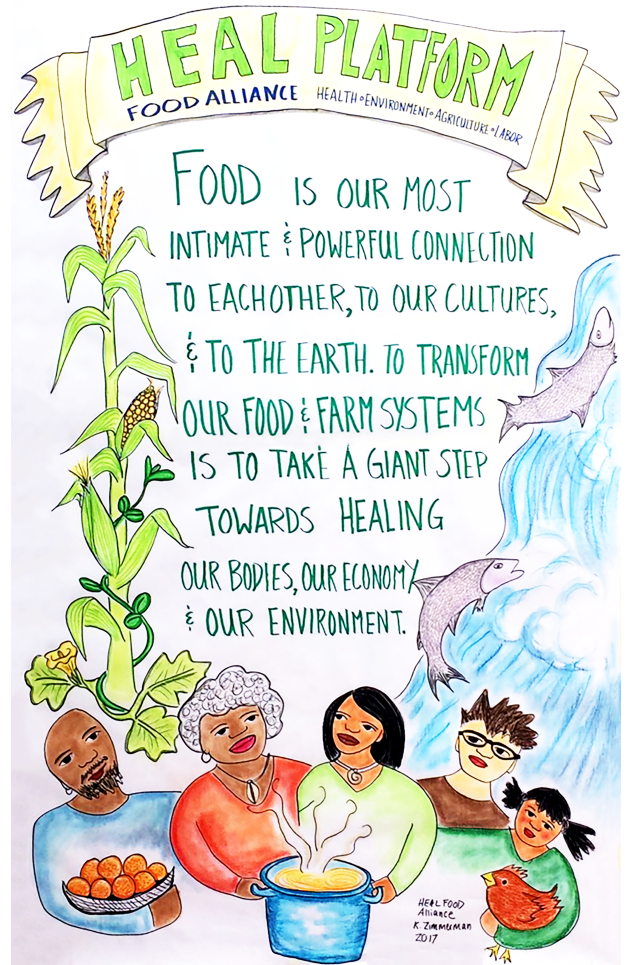 HEAL PLATFORM
FOOD ALLIANCE HEALTH • ENVIRONMENT • AGRICULTURE • LABOR
FOOD IS OUR MOST
INTIMATE & POWERFUL CONNECTION
TO EACHOTHER, TO OUR CULTURES,
& TO THE EARTH. TO TRANSFORM
OUR FOOD & FARM SYSTEMS
IS TO TAKE A GIANT STEP
TOWARDS HEALING
OUR BODIES, OUR ECONOMY
& OUR ENVIRONMENT.
HEAL FOOD
Alliance
K. Zimmerman
2017